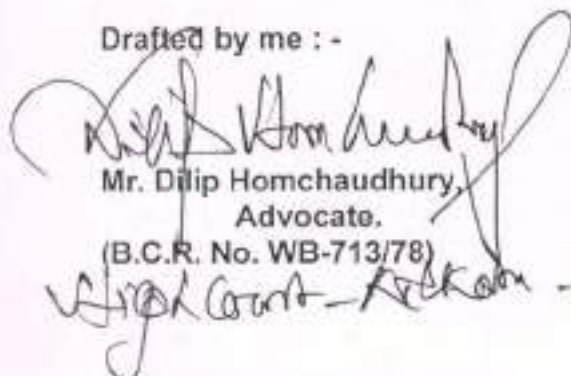 Drafted by me : -
Dilip Homchaudhury
Mr. Dilip Homchaudhury,
Advocate.
(B.C.R. No. WB-713/78)
High Court - Kolkata -